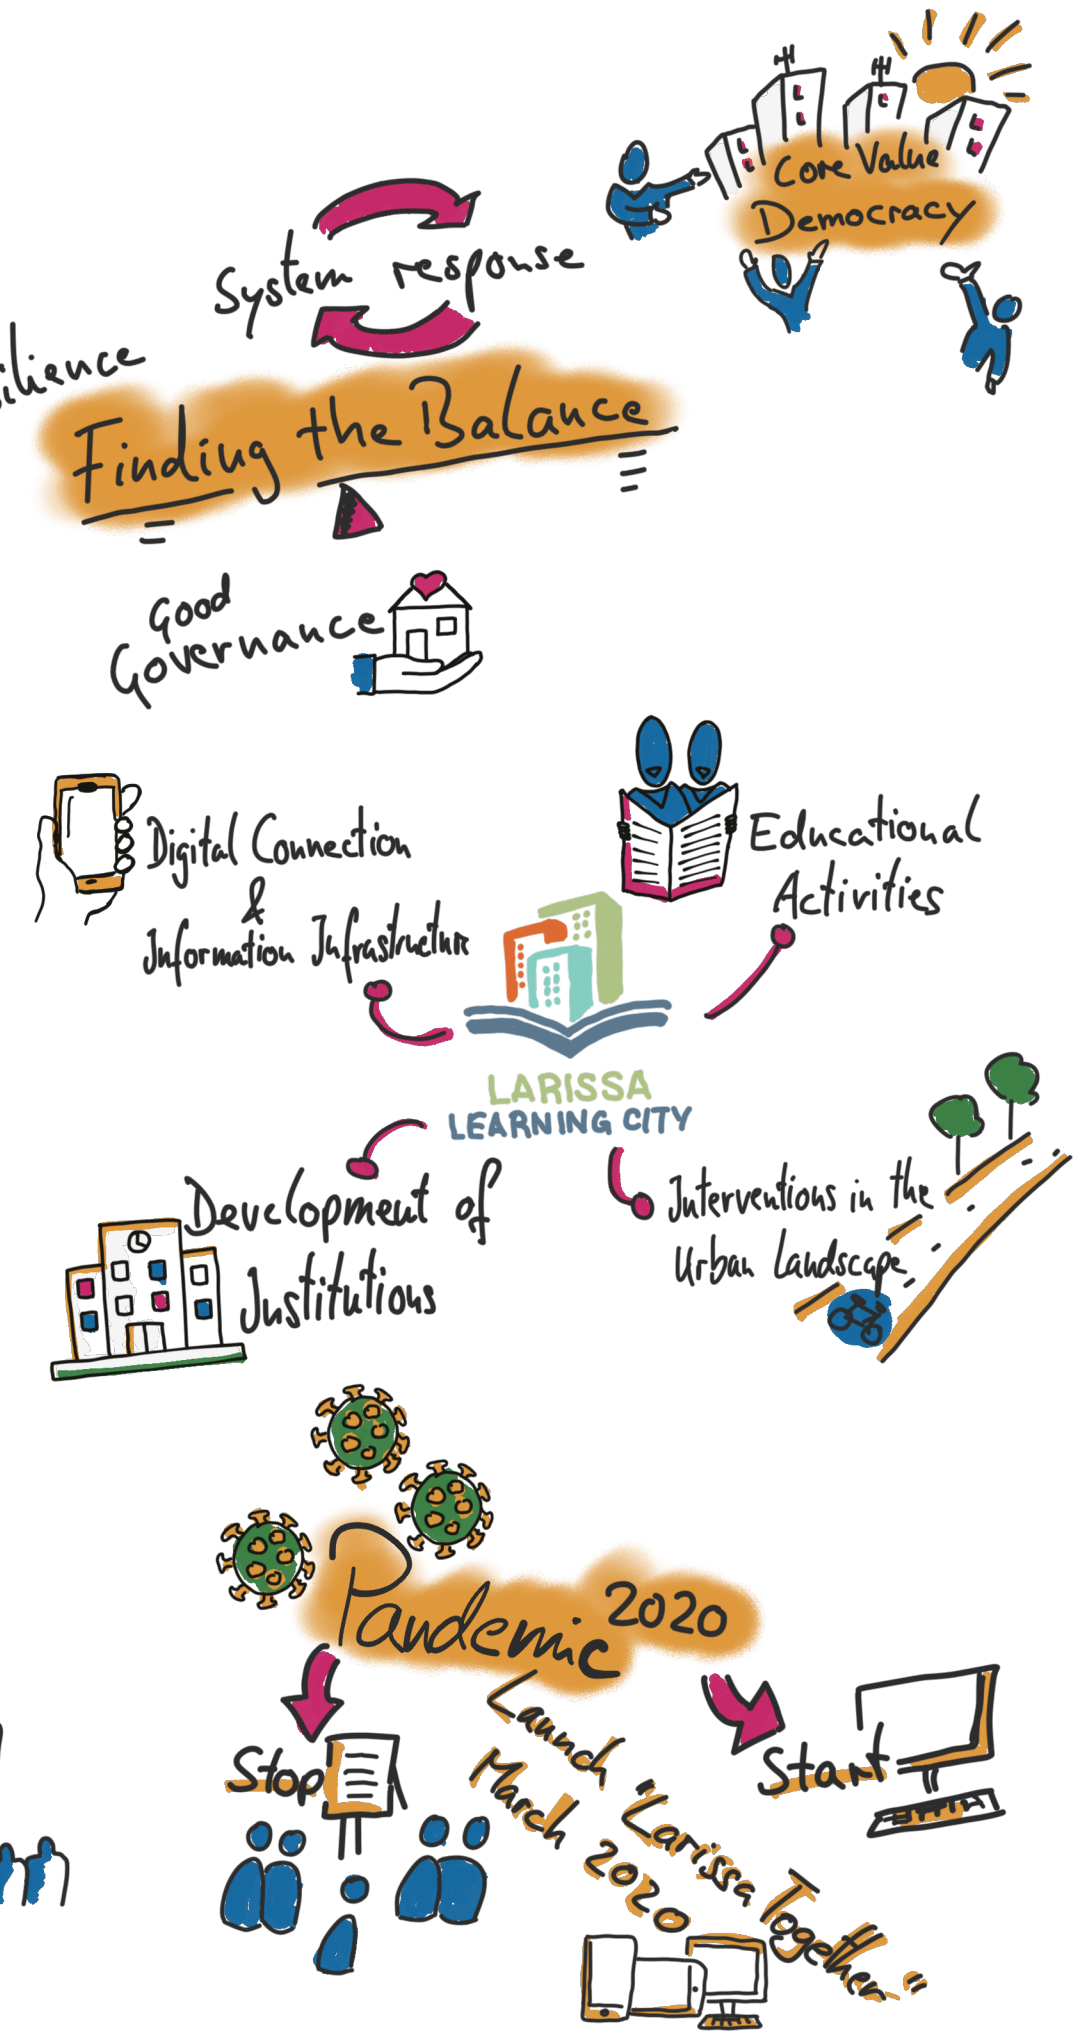 Core Value
Democracy
System response
silience
Finding the Balance
Good
Governance
Digital Connection
&
Information Infrastructure
Educational
Activities
LARISSA
LEARNING CITY
Development of
Institutions
Interventions in the
Urban Landscape
Pandemic 2020
Stop
Start
Launch "Larissa Together"
March 2020